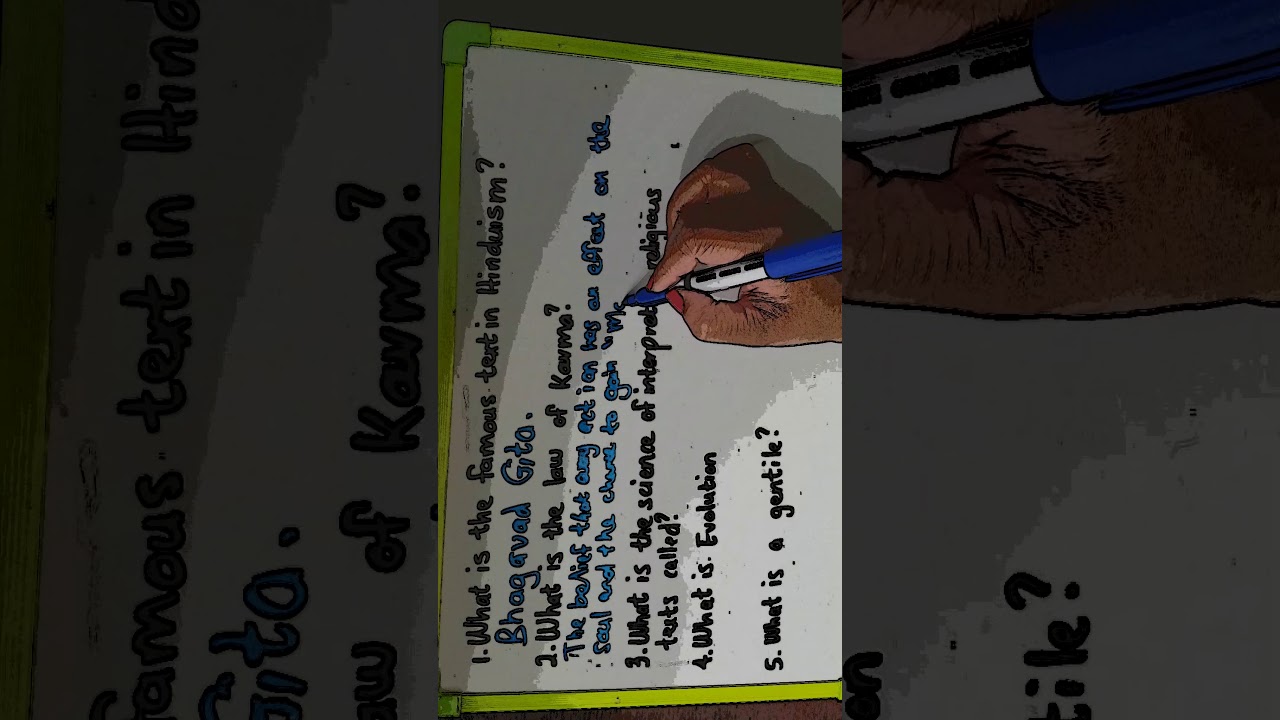 1. What is the famous text in Hinduism?
Bhagavad Gita.
2. What is the law of Karma?
The belief that every action has an effect on the
soul and the chance to gain "Mo
3. What is the science of interpret religious
texts called?
4. What is Evolution
5. What is a gentile?